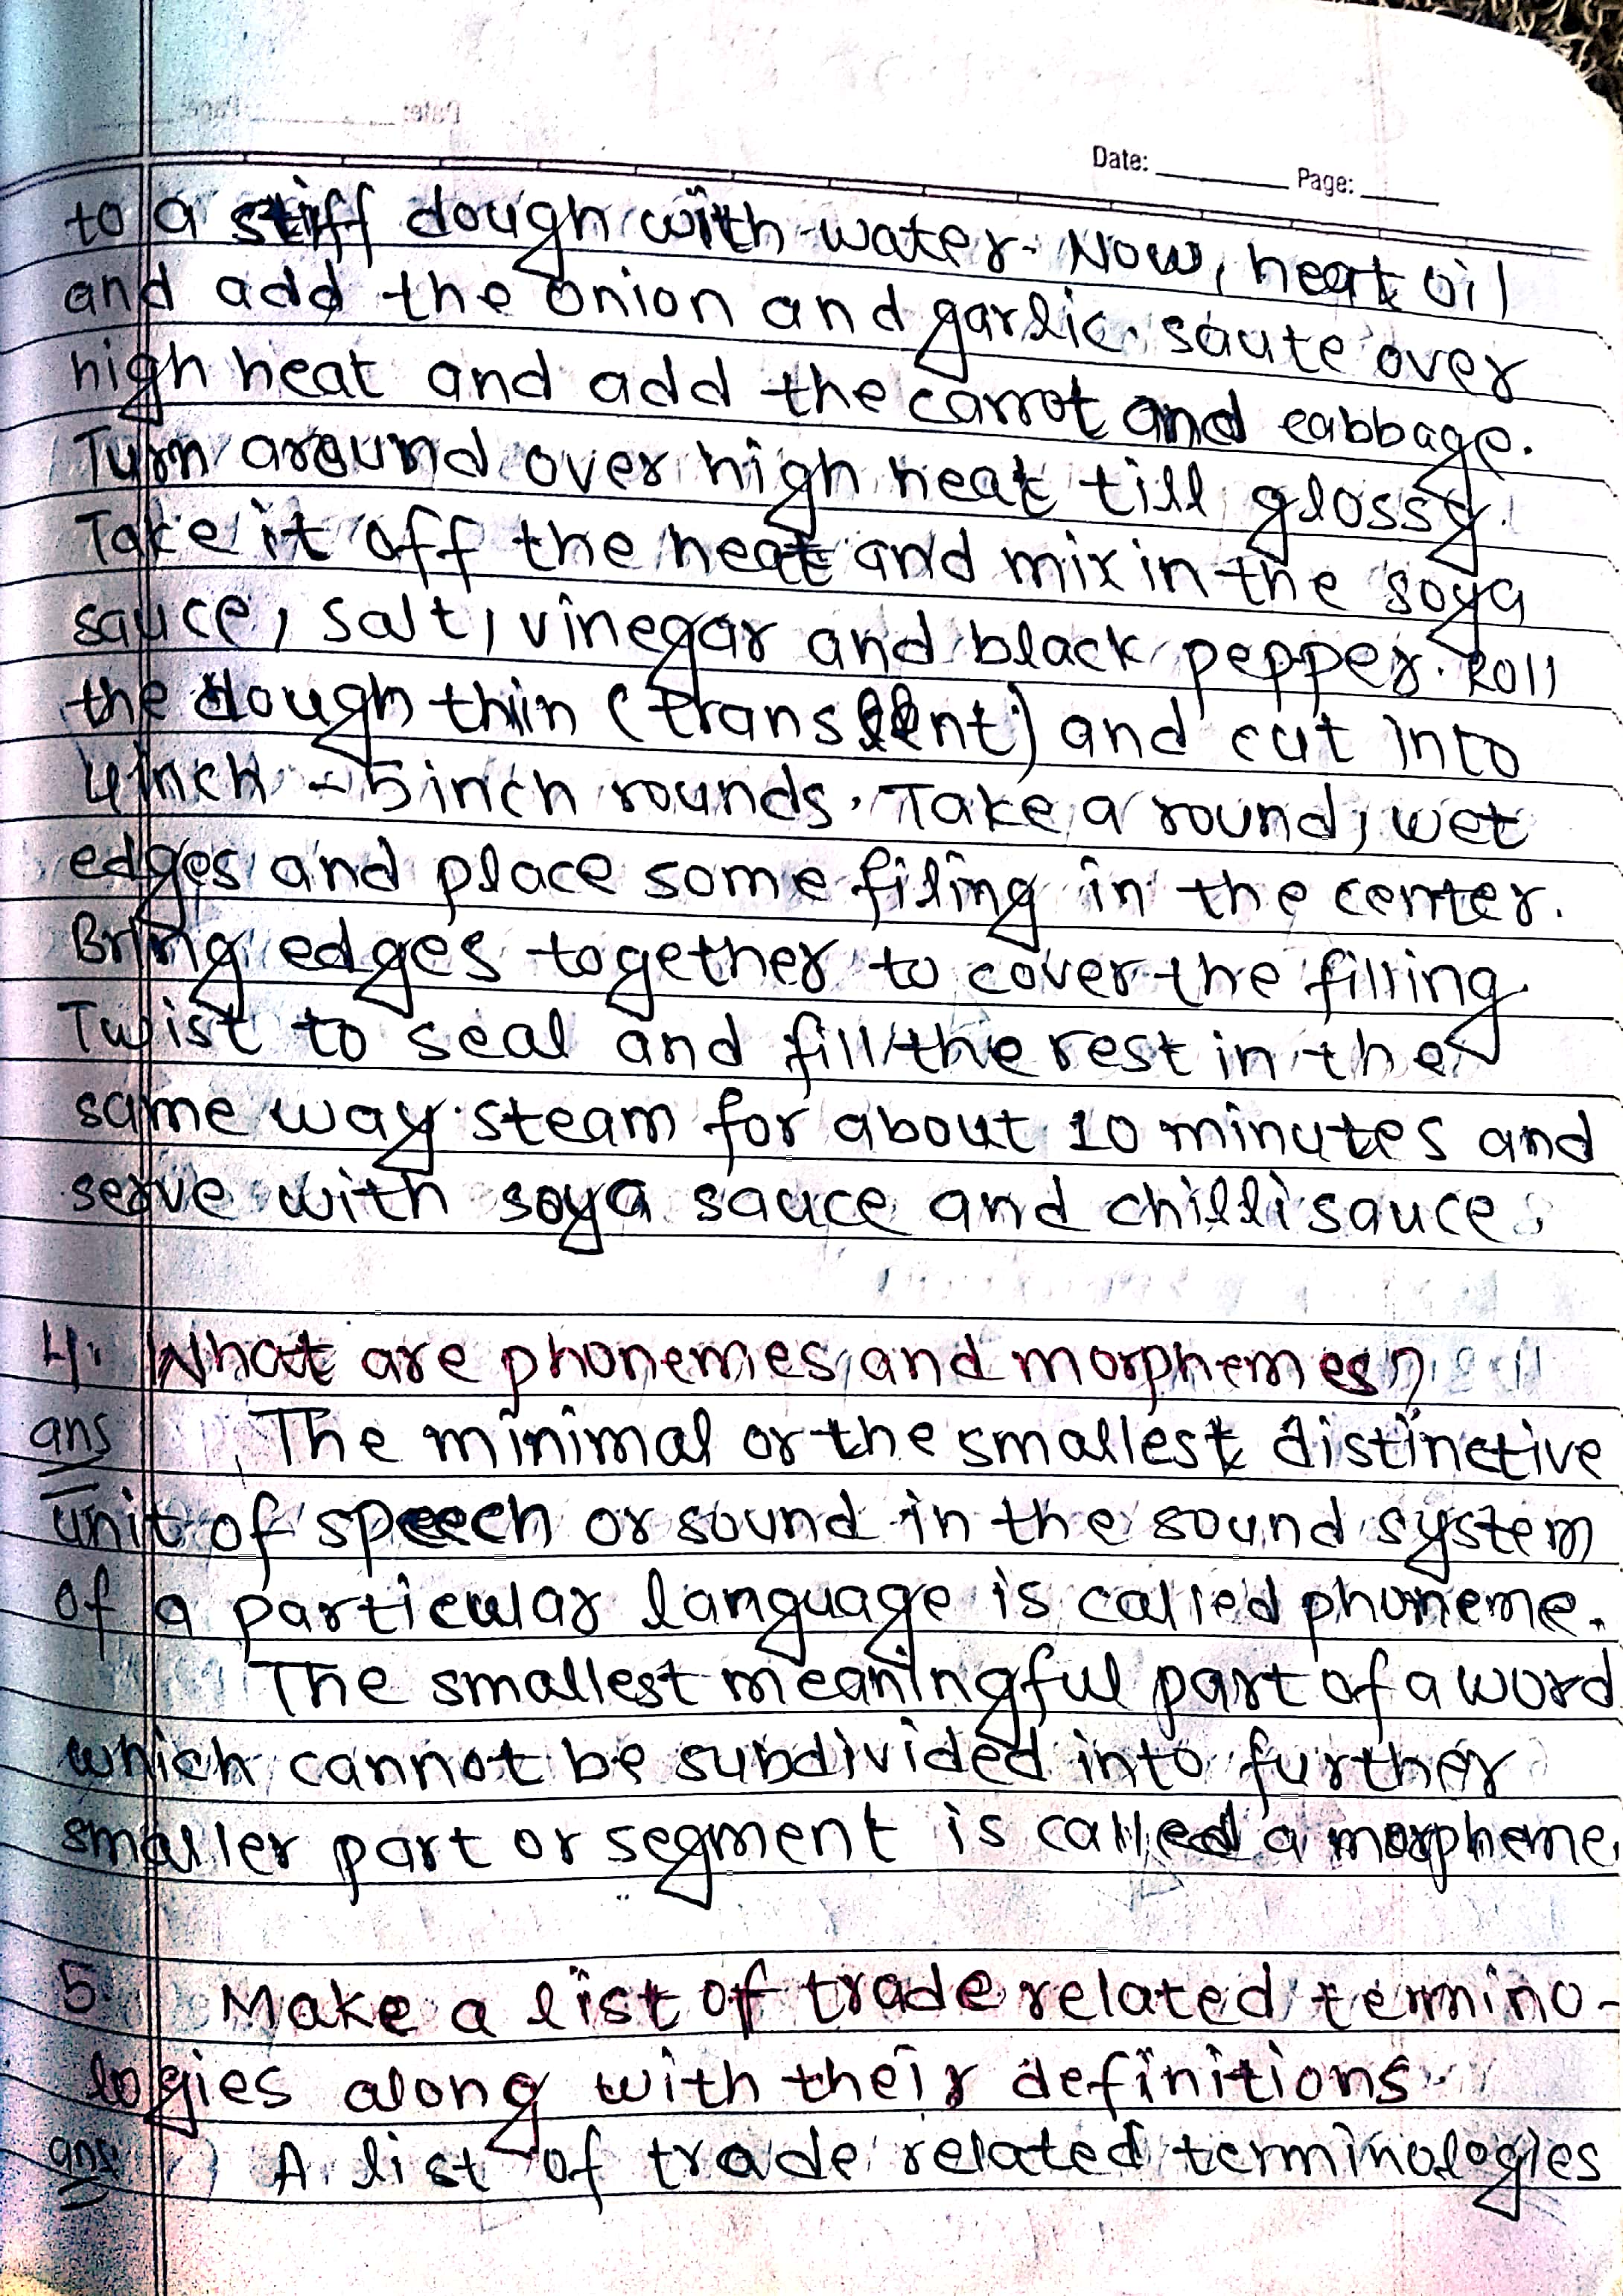 Date: Page:
to a stiff dough with water. Now, heat oil
and add the onion and garlic. saute over
high heat and add the carrot and cabbage.
Turn around over high heat till glossy.
Take it off the heat and mix in the soya
sauce, salt, vinegar and black pepper. Roll
the dough thin ( ) and cut into
4inch - 5 inch rounds. Take a round, wet
edges and place some filing in the center.
Bring edges together to cover the filling.
Twist to seal and fill the rest in the
same way. steam for about 10 minutes and
serve with soya sauce and chilli sauce.
4. What are phonemes and morphemes?
ans The minimal or the smallest distinctive
unit of speech or sound in the sound system
of a particular language is called phoneme.
The smallest meaningful part of a word
which cannot be subdivided into further
smaller part or segment is called a morpheme.
5. Make a list of trade related termino-
logies along with their definitions.
ans A list of trade related terminologies